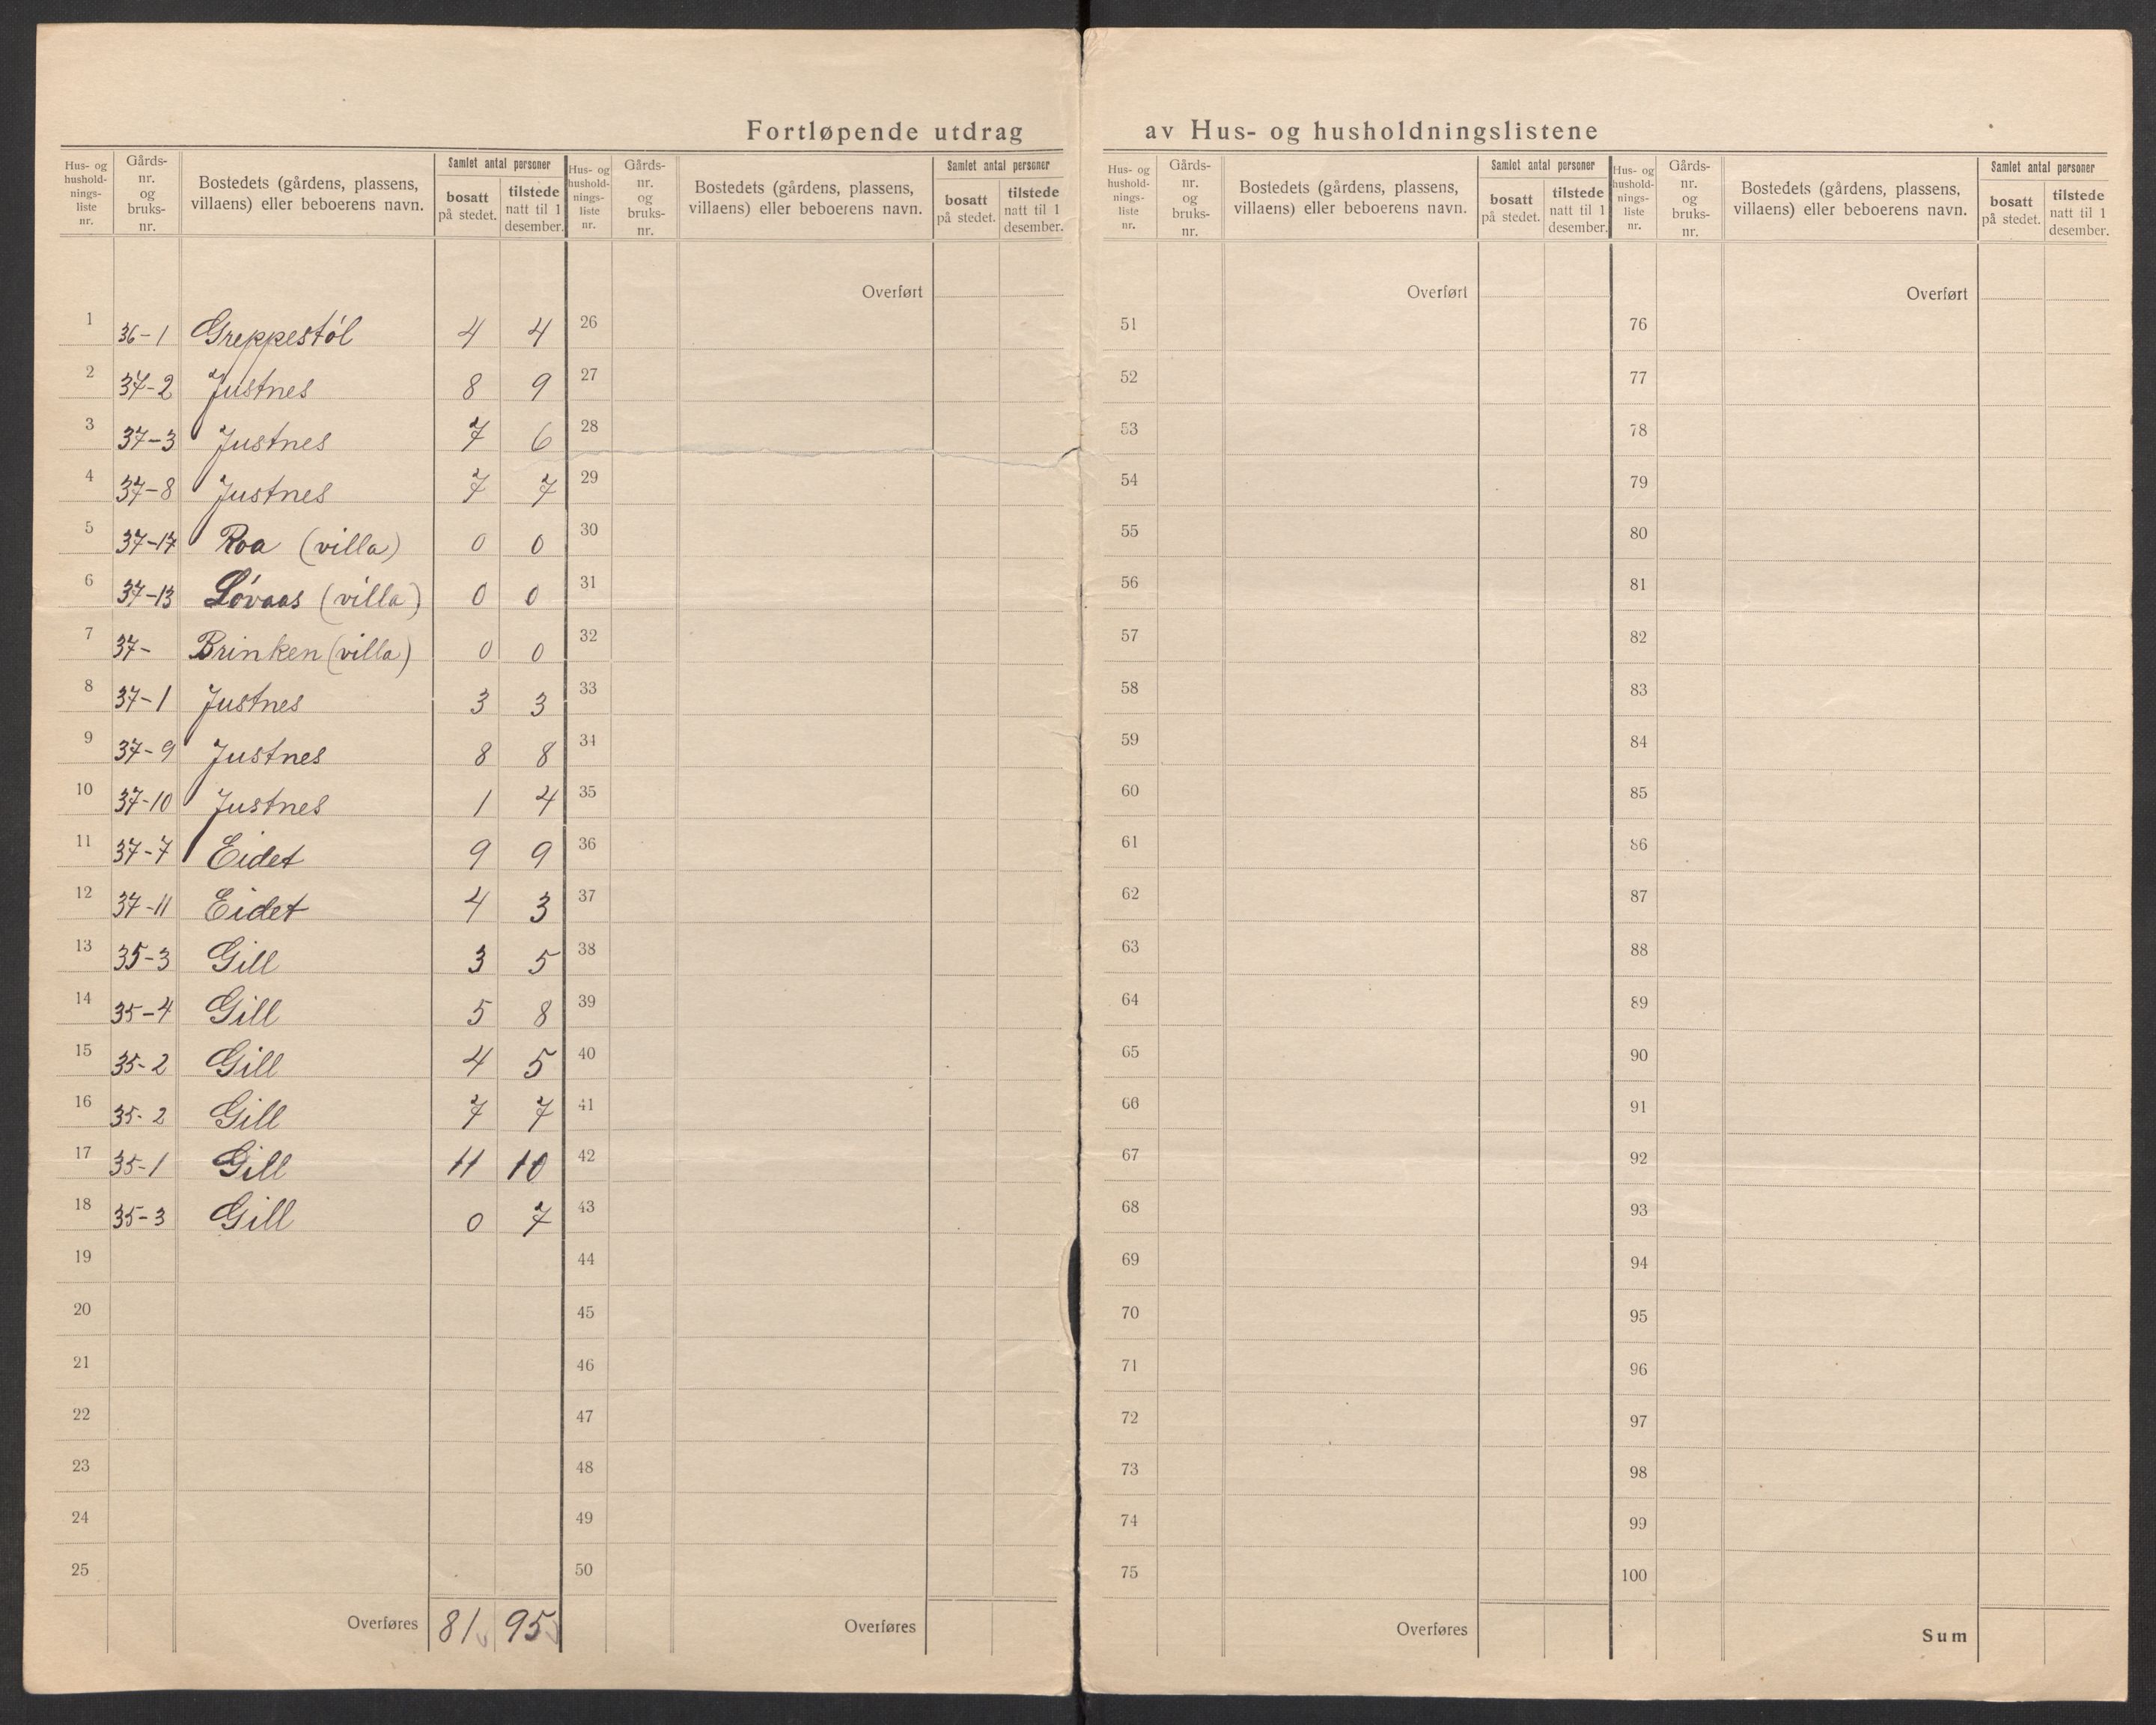 Fortløpende utdrag av Hus- og husholdningslistene
Hus- og husholdnings-liste nr. Gårds-nr. og bruks-nr. Bostedets (gårdens, plassens, villaens) eller beboerens navn. Samlet antal personer bosatt på stedet. tilstede natt til 1 desember.
1 36-1 Greppestøl 4 4
2 37-2 Justnes 8 9
3 37-3 Justnes 7 6
4 37-8 Justnes 7 7
5 37-17 Roa (villa) 0 0
6 37-13 Lövaas (villa) 0 0
7 37- Brinken (villa) 0 0
8 37-1 Justnes 3 3
9 37-9 Justnes 8 8
10 37-10 Justnes 1 4
11 37-7 Eidet 9 9
12 37-11 Eidet 4 3
13 35-3 Gill 3 5
14 35-4 Gill 5 8
15 35-2 Gill 4 5
16 35-2 Gill 7 7
17 35-1 Gill 11 10
18 35-3 Gill 0 7
19
20
21
22
23
24
25
Overføres 81 95
Hus- og husholdnings-liste nr. Gårds-nr. og bruks-nr. Bostedets (gårdens, plassens, villaens) eller beboerens navn. Samlet antal personer bosatt på stedet. tilstede natt til 1 desember.
Overført
26
27
28
29
30
31
32
33
34
35
36
37
38
39
40
41
42
43
44
45
46
47
48
49
50
Overføres
Hus- og husholdnings-liste nr. Gårds-nr. og bruks-nr. Bostedets (gårdens, plassens, villaens) eller beboerens navn. Samlet antal personer bosatt på stedet. tilstede natt til 1 desember.
Overført
51
52
53
54
55
56
57
58
59
60
61
62
63
64
65
66
67
68
69
70
71
72
73
74
75
Overføres
Hus- og husholdnings-liste nr. Gårds-nr. og bruks-nr. Bostedets (gårdens, plassens, villaens) eller beboerens navn. Samlet antal personer bosatt på stedet. tilstede natt til 1 desember.
Overført
76
77
78
79
80
81
82
83
84
85
86
87
88
89
90
91
92
93
94
95
96
97
98
99
100
Sum